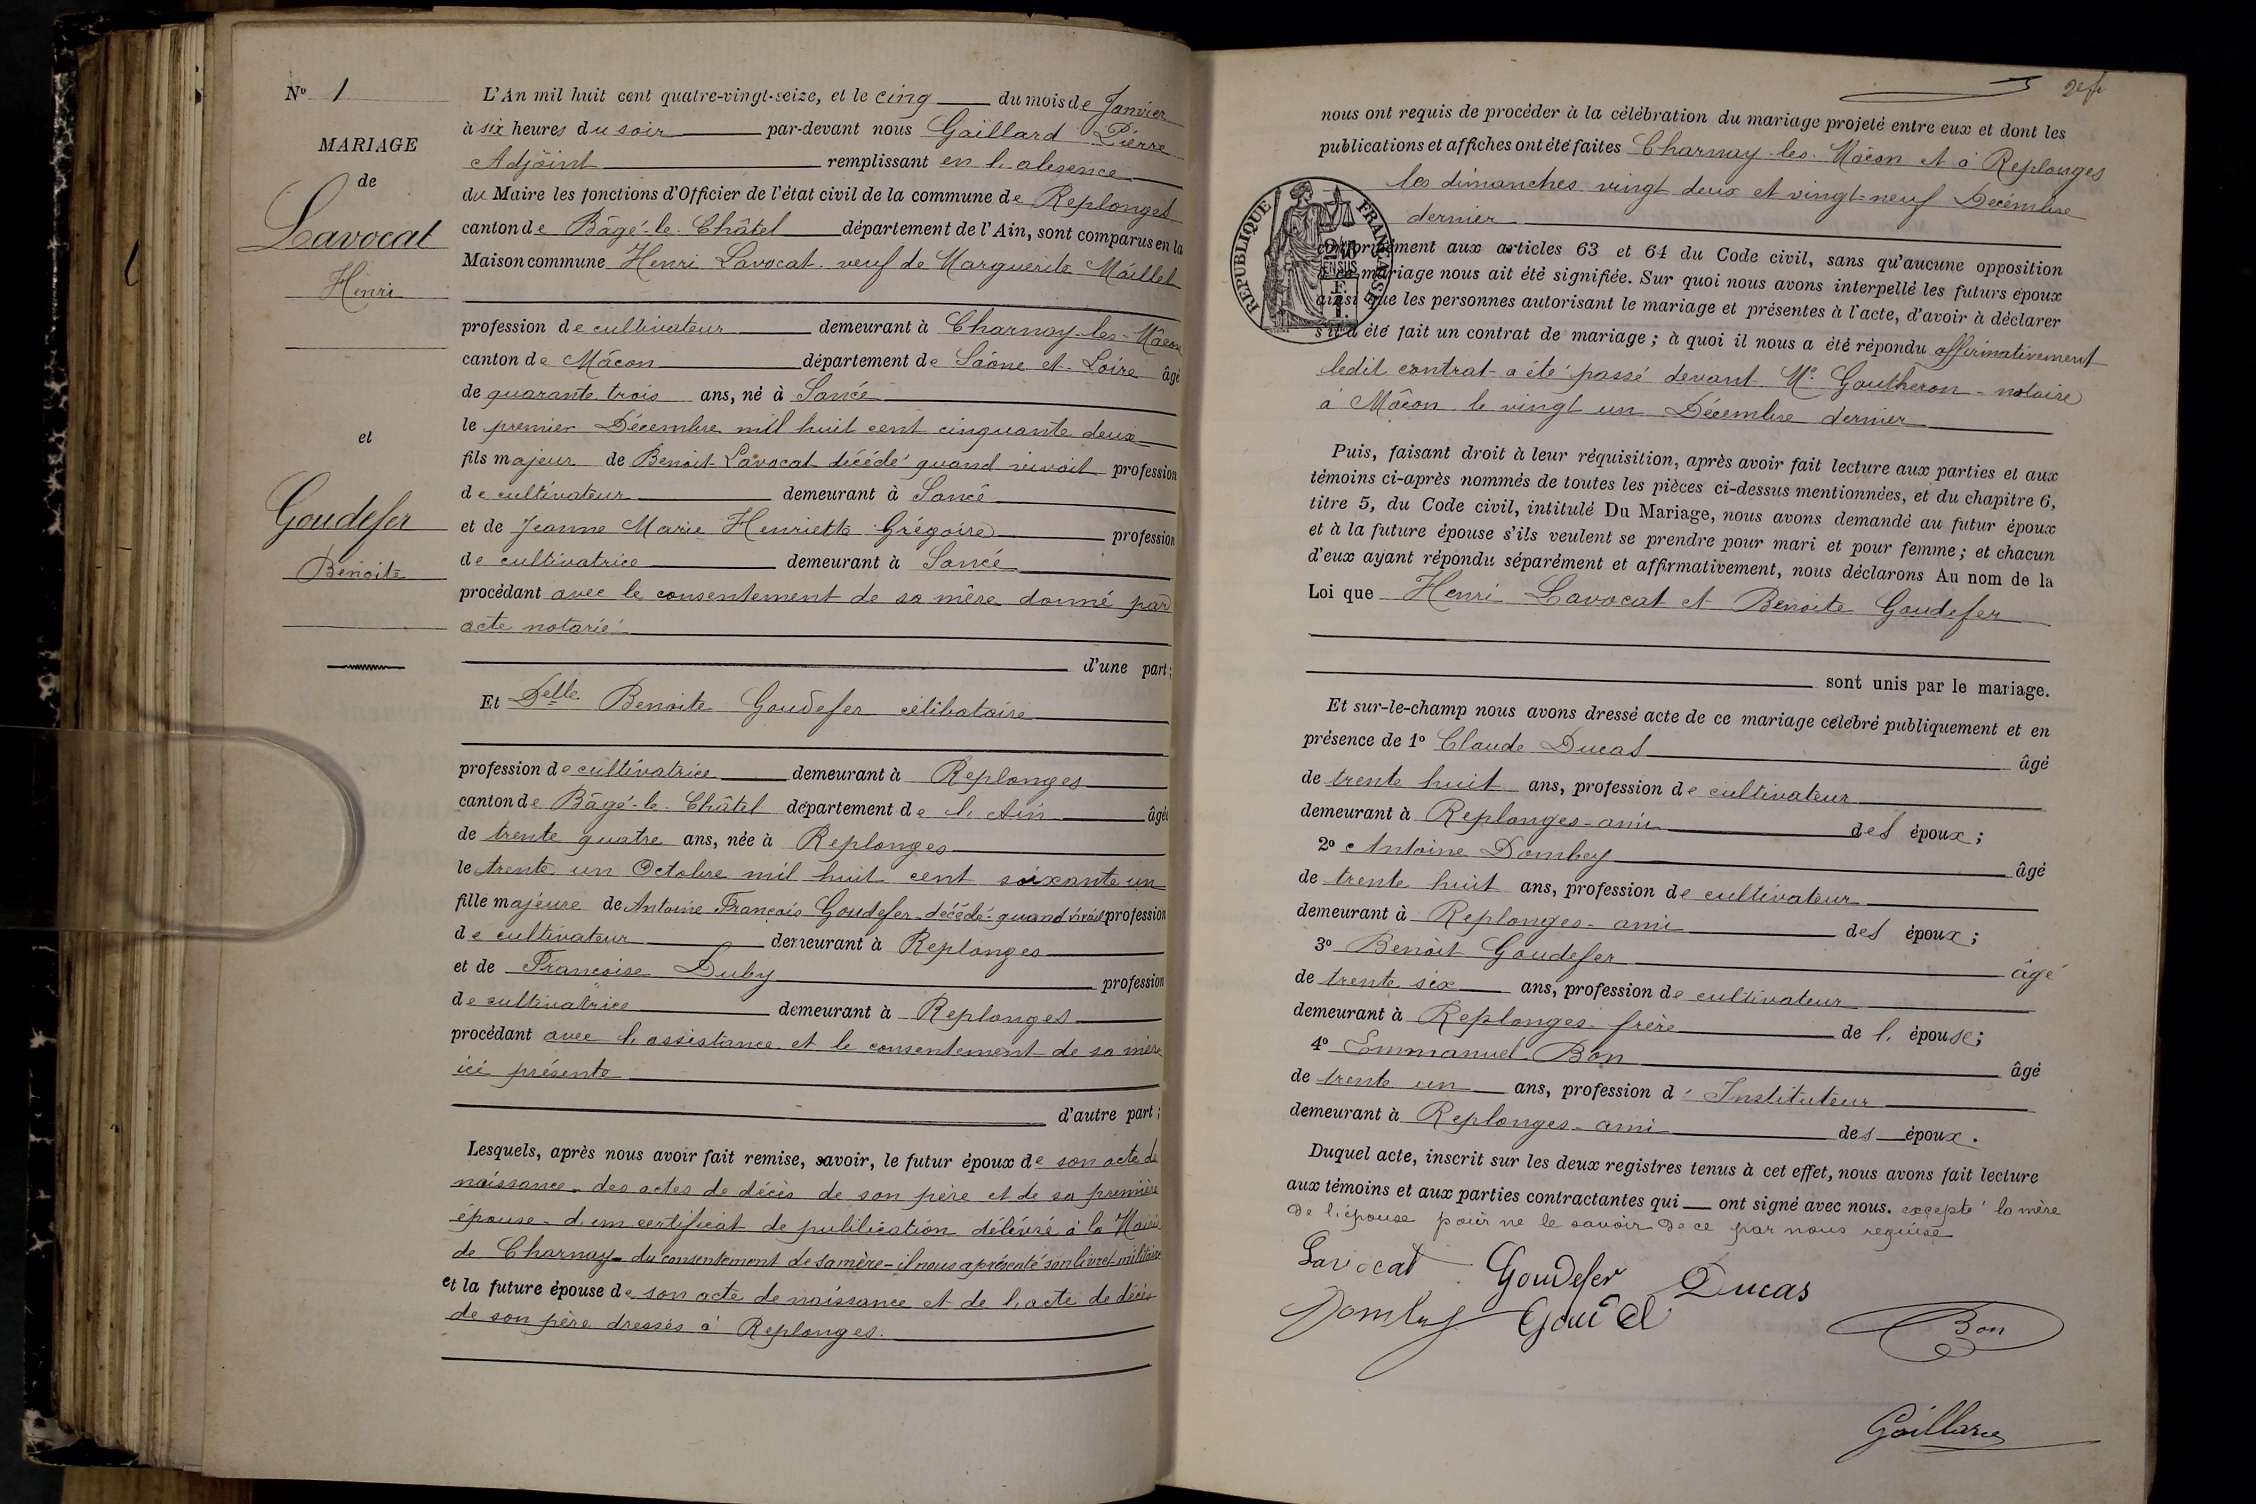 N° 1
MARIAGE
de
Lavocat
Henri
et
Goudefer
Benoite
L'An mil huit cent quatre-vingt-seize, et le cinq du mois de Janvier
à six heures du soir par-devant nous Gaillard Pierre
Adjoint remplissant en l'absence
du Maire les fonctions d'Officier de l'état civil de la commune de Replonges
canton de Bâgé-le-Châtel département de l'Ain, sont comparus en la
Maison commune Henri Lavocat veuf de Marguerite Maillet
profession de cultivateur demeurant à Charnay-les-Mâcon
canton de Mâcon département de Saône et Loire âgé
de quarante trois ans, né à Sancé
le premier Décembre mil huit cent cinquante deux
fils majeur de Benoit Lavocat décédé quand vivait profession
de cultivateur demeurant à Sancé
et de Jeanne Marie Henriette Grégoire profession
de cultivatrice demeurant à Sancé
procédant avec le consentement de sa mère donné par
acte notarié
d'une part;
Et Delle Benoite Goudefer célibataire
profession de cultivatrice demeurant à Replonges
canton de Bâgé-le-Châtel département de l'Ain âgée
de trente quatre ans, née à Replonges
le trente un Octobre mil huit cent soixante un
fille majeure de Antoine François Goudefer décédé quand vivait profession
de cultivateur demeurant à Replonges
et de Françoise Duby profession
de cultivatrice demeurant à Replonges
procédant avec l'assistance et le consentement de sa mère
ici présente
d'autre part;
Lesquels, après nous avoir fait remise, savoir, le futur époux de son acte de
naissance des actes de décès de son père et de sa première
épouse - d'un certificat de publication délivré à la Mairie
de Charnay - du consentement de sa mère - il nous a présenté son livret militaire
et la future épouse de son acte de naissance et de l'acte de décès
de son père dressés à Replonges.
nous ont requis de procéder à la célébration du mariage projeté entre eux et dont les
publications et affiches ont été faites Charnay-les-Mâcon et à Replonges
les dimanches vingt deux et vingt-neuf Décembre
dernier
conformément aux articles 63 et 64 du Code civil, sans qu'aucune opposition
à ce mariage nous ait été signifiée. Sur quoi nous avons interpellé les futurs époux
ainsi que les personnes autorisant le mariage et présentes à l'acte, d'avoir à déclarer
s'il a été fait un contrat de mariage; à quoi il nous a été répondu affirmativement
ledit contrat a été passé devant Me Gautheron - notaire
à Mâcon le vingt un Décembre dernier
REPUBLIQUE FRANÇAISE
Puis, faisant droit à leur réquisition, après avoir fait lecture aux parties et aux
témoins ci-après nommés de toutes les pièces ci-dessus mentionnées, et du chapitre 6,
titre 5, du Code civil, intitulé Du Mariage, nous avons demandé au futur époux
et à la future épouse s'ils veulent se prendre pour mari et pour femme; et chacun
d'eux ayant répondu séparément et affirmativement, nous déclarons Au nom de la
Loi que Henri Lavocat et Benoite Goudefer
sont unis par le mariage.
Et sur-le-champ nous avons dressé acte de ce mariage célébré publiquement et en
présence de 1° Claude Ducas âgé
de trente huit ans, profession de cultivateur
demeurant à Replonges - ami des époux;
2° Antoine Dombey âgé
de trente huit ans, profession de cultivateur
demeurant à Replonges - ami des époux;
3° Benoit Goudefer âgé
de trente six ans, profession de cultivateur
demeurant à Replonges - frère de l'épouse;
4° Emmanuel Bon âgé
de trente un ans, profession d'Instituteur
demeurant à Replonges - ami des époux.
Duquel acte, inscrit sur les deux registres tenus à cet effet, nous avons fait lecture
aux témoins et aux parties contractantes qui ont signé avec nous. excepté la mère
de l'épouse pour ne le savoir de ce par nous requise
Lavocat Goudefer Ducas
Dombey Goud Bon
Gaillard